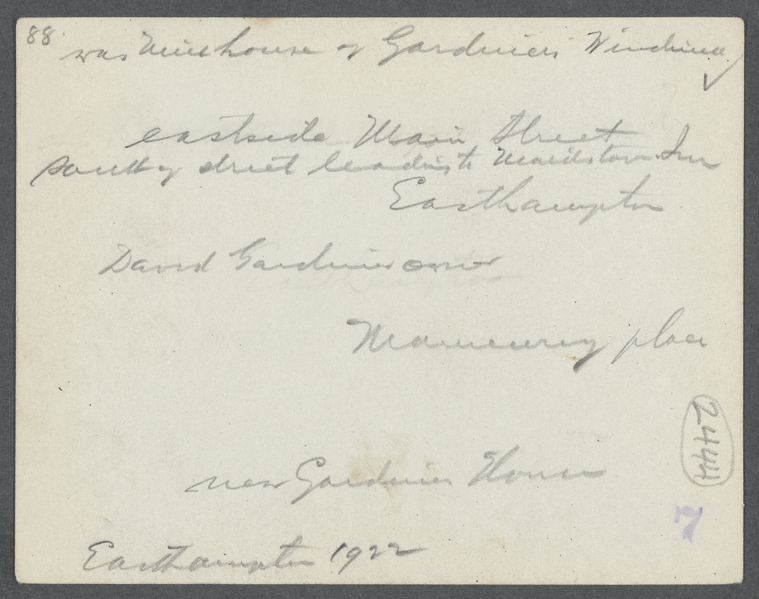 88
was Millhouse of Gardiners Windmill
eastside Main Street
south of street leading to Maidstone Inn
Easthampton
David Gardiner owner
place
2444
near Gardiner House
7
Easthampton 1922